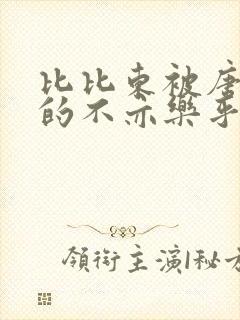 比比东被唐
的不亦樂乎
領銜主演/秘方